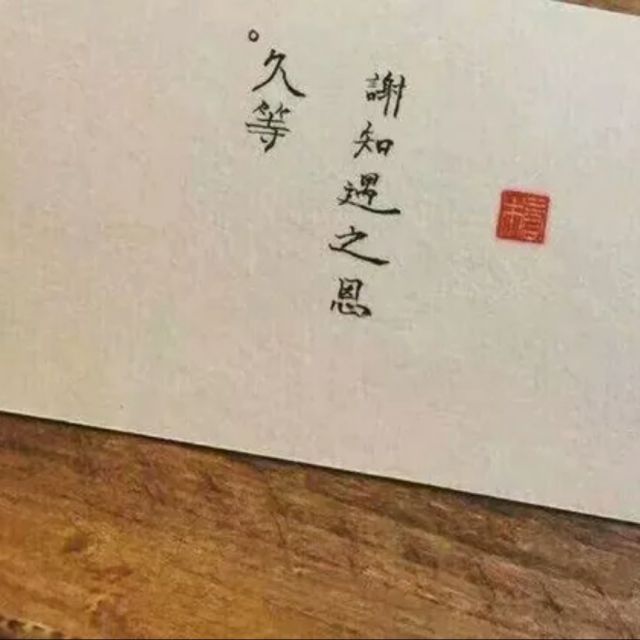 謝知遇之恩
久等